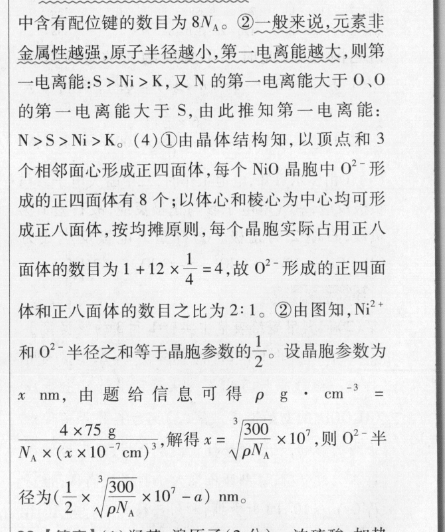 中含有配位键的数目为 8N_A。②一般来说,元素非
金属性越强,原子半径越小,第一电离能越大,则第
一电离能:S>Ni>K,又 N 的第一电离能大于 O、O
的第一电离能大于 S,由此推知第一电离能:
N>S>Ni>K。(4)①由晶体结构知,以顶点和 3
个相邻面心形成正四面体,每个 NiO 晶胞中 O²⁻形
成的正四面体有 8 个;以体心和棱心为中心均可形
成正八面体,按均摊原则,每个晶胞实际占用正八
面体的数目为 1+12×1/4=4,故 O²⁻形成的正四面
体和正八面体的数目之比为 2∶1。②由图知,Ni²⁺
和 O²⁻半径之和等于晶胞参数的1/2。设晶胞参数为
x nm,由题给信息可得 ρ g·cm⁻³=
4×75 g/(N_A×(x×10⁻⁷cm)³),解得 x=∛(300/(ρN_A))×10⁷,则 O²⁻半
径为(1/2×∛(300/(ρN_A))×10⁷-a) nm。